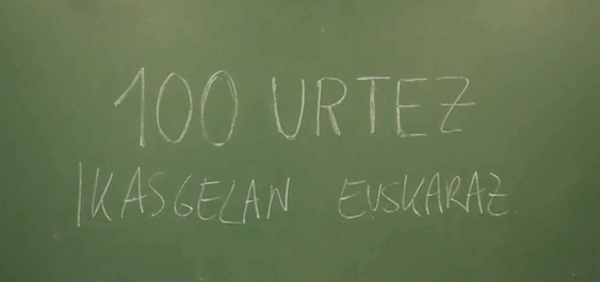 100 URTEZ
IKASGELAN EUSKARAZ